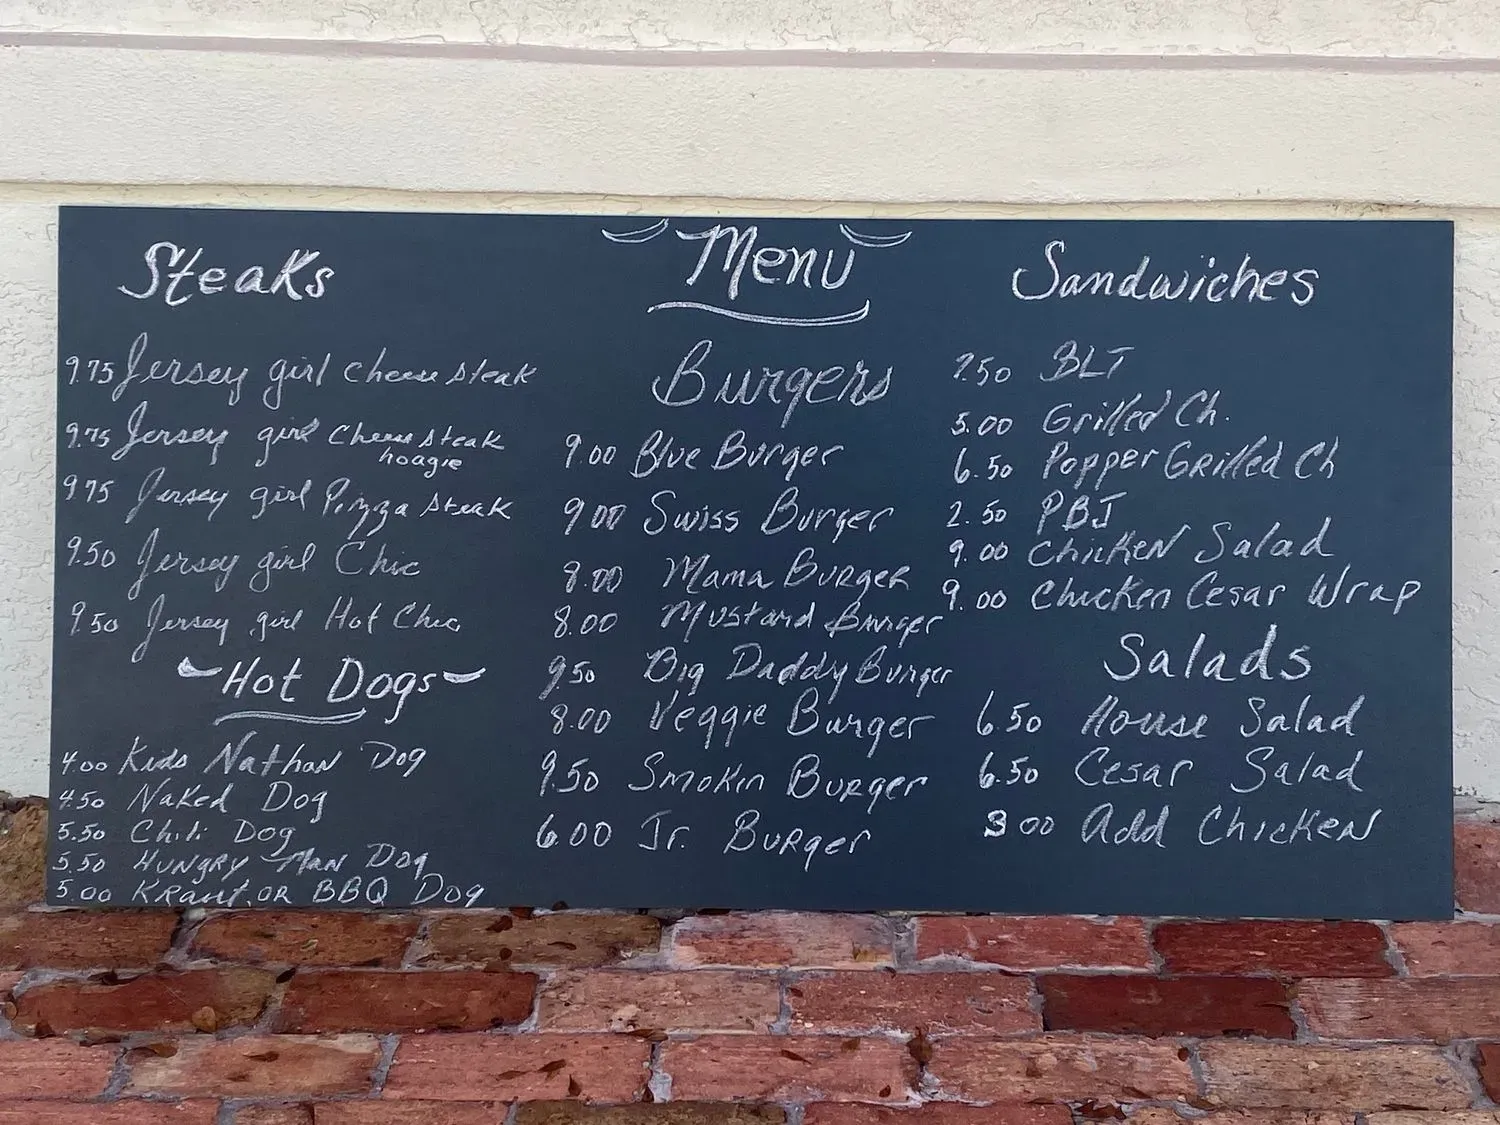 Menu
Steaks
9.75 Jersey girl cheese steak
9.75 Jersey girl cheese steak
hoagie
9.75 Jersey girl Pizza steak
9.50 Jersey girl Chic
9.50 Jersey girl Hot Chic
Hot Dogs
4.00 Kids Nathan Dog
4.50 Naked Dog
5.50 Chili Dog
5.50 Hungry Man Dog
5.00 Kraut or BBQ Dog
Burgers
9.00 Blue Burger
9.00 Swiss Burger
8.00 Mama Burger
8.00 Mustard Burger
9.50 Big Daddy Burger
8.00 Veggie Burger
9.50 Smokin Burger
6.00 Jr. Burger
Sandwiches
7.50 BLT
5.00 Grilled Ch.
6.50 Popper Grilled Ch
2.50 PBJ
9.00 Chicken Salad
9.00 Chicken Cesar Wrap
Salads
6.50 House Salad
6.50 Cesar Salad
3.00 Add Chicken